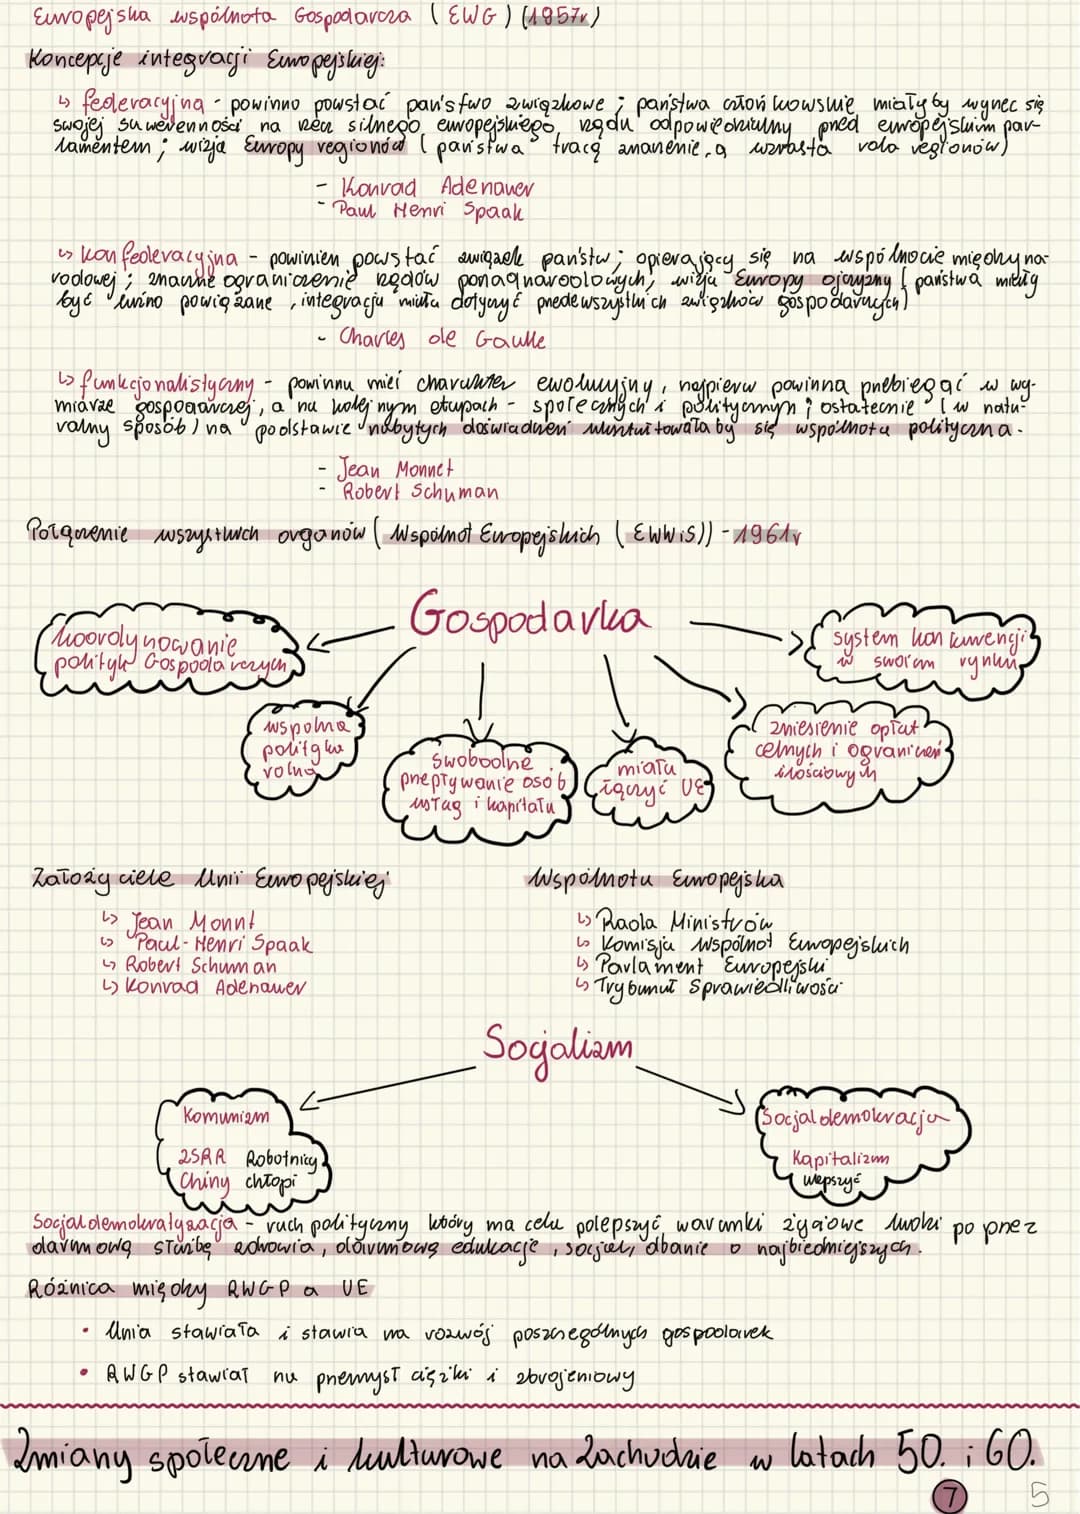 Europejska wspólnota Gospodarcza (EWG) (1957r)
Koncepcje integracji Europejskiej:
↳ federacyjna - powinno powstać państwo związkowe ; państwa członkowskie miałyby wyrzec się
swojej suwerenności na rzecz silnego europejskiego rządu odpowiedzialny przed europejskim par-
lamentem ; wizja Europy regionów ( państwa tracą znaczenie, a wzrasta rola regionów)
- Konrad Adenauer
- Paul Henri Spaak
↳ konfederacyjna - powinien powstać związek państw; opierający się na wspólnocie międzyna-
rodowej ; znaczne ograniczenie rządów ponadnarodowych, wizja Europy ojczyzny ( państwa miały
być luźno powiązane, integracja miała dotyczyć przedewszystkich związków gospodarczych)
- Charles de Gaulle
↳ funkcjonalistyczny - powinna mieć charakter ewolucyjny, najpierw powinna przebiegać w wy-
miarze gospodarczej, a na kolejnym etapach - społecznych i politycznych ; ostatecznie (w natu-
ralny sposób) na podstawie nabytych doświadczeń ukształtowałaby się wspólnota polityczna.
- Jean Monnet
- Robert Schuman
Połączenie wszystkich organów ( Wspólnot Europejskich (EWWiS)) - 1961r
Gospodarka
koordynowanie
polityk Gospodarczych
system konkurencji
w swoim rynku
wspolna
polityka
rolna
Swobodne
przepływanie osób
usług i kapitału
miała
łączyć UE
zniesienie opłat
celnych i ograniczeń
ilościowych
Założyciele Unii Europejskiej
↳ Jean Monnt
↳ Paul-Henri Spaak
↳ Robert Schuman
↳ Konrad Adenauer
Wspólnota Europejska
↳ Rada Ministrów
↳ Komisja Wspólnot Europejskich
↳ Parlament Europejski
↳ Trybunał Sprawiedliwości
Socjalizm
Komunizm
ZSRR Robotnicy
Chiny chłopi
Socjaldemokracja
Kapitalizm
wepszyć
Socjaldemokratyzacja - ruch polityczny który ma celu polepszyć warunki życiowe ludzi po przez
darmową służbę zdrowia, darmową edukacje, socjal, dbanie o najbiedniejszych.
Róznica między RWGP a UE
• Unia stawiała i stawia na rozwój poszczególnych gospodarek
• RWGP stawiał na przemysł ciężki i zbrojeniowy
Zmiany społeczne i kulturowe na Zachodzie w latach 50. i 60.
7
5